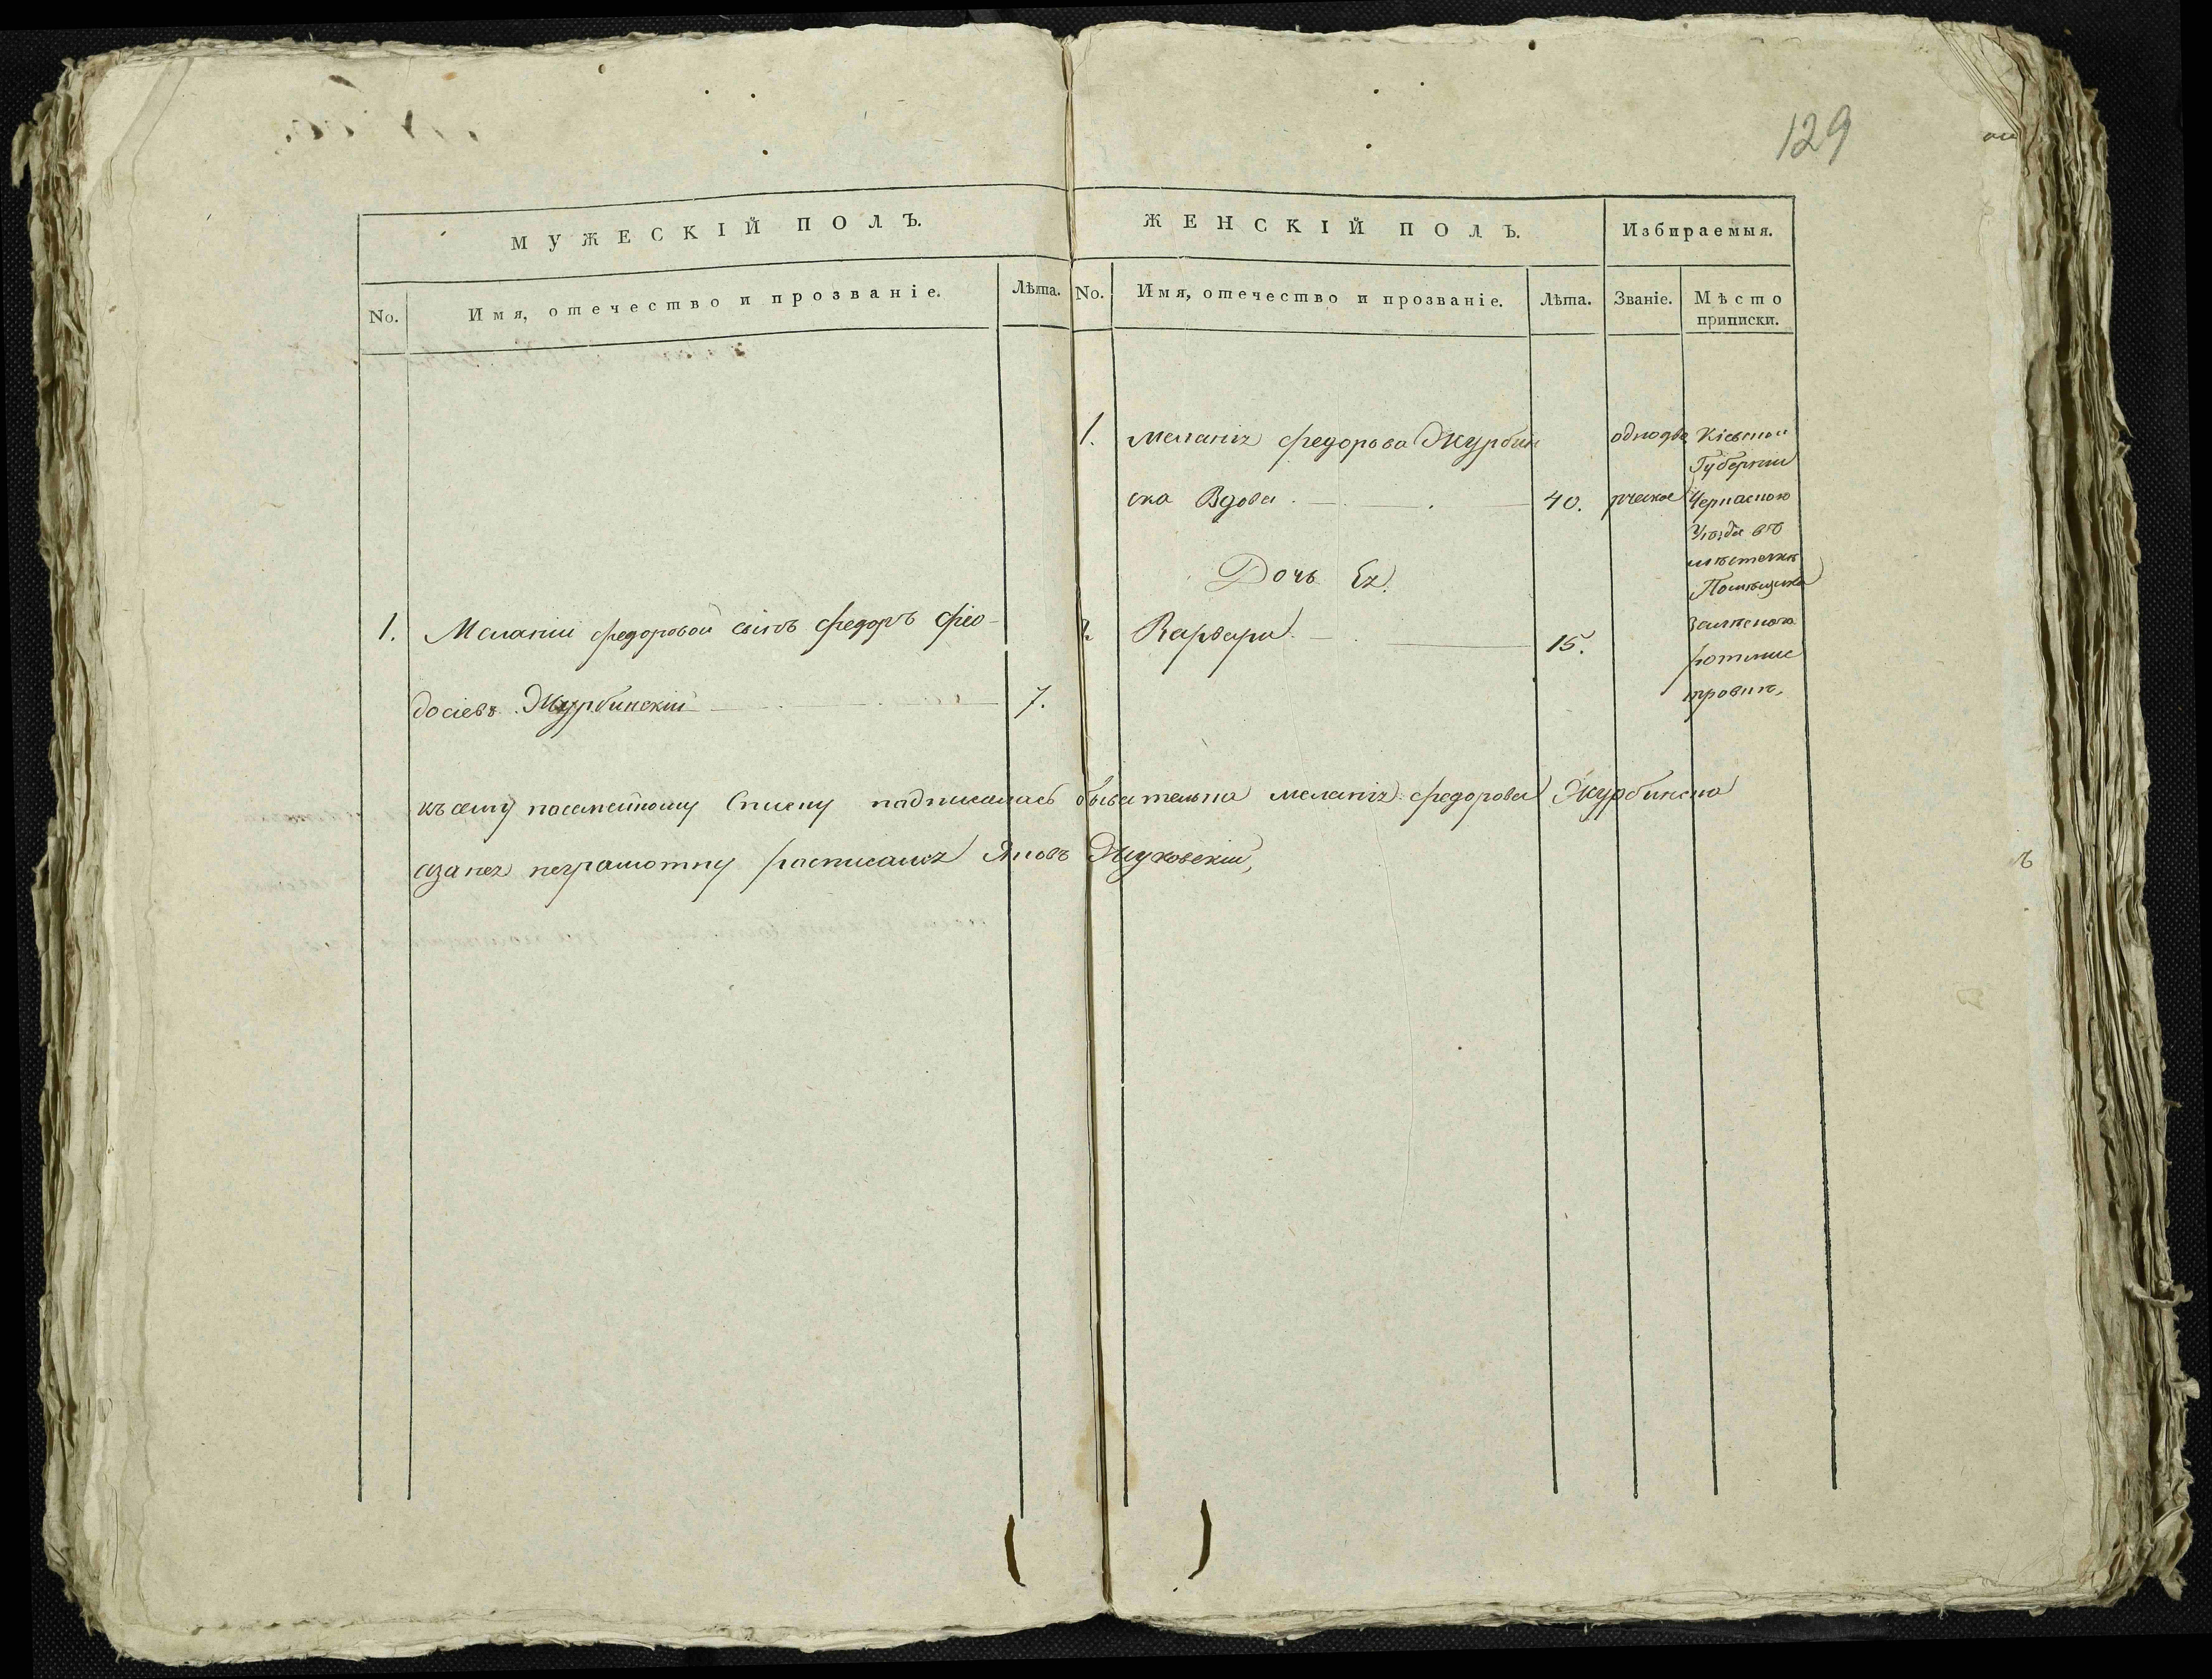 129
МУЖЕСКІЙ ПОЛЪ.
No. Имя, отечество и прозваніе. Лѣта.
1. Меланіи федоровой сынъ федоръ Фео-
досіевъ Журбинскій 7.
ЖЕНСКІЙ ПОЛЪ. Избираемыя.
No. Имя, отечество и прозваніе. Лѣта. Званіе. Мѣсто
приписки.
1. Меланія федорова Журбин
ска Вдова 40.
Дочь Ея.
2. Варвара 15.
однодво
рческое
Кіевской
Губерніи
Черкаского
Уезда въ
мѣстечкѣ
Помѣщика
ротмис
тровки,
къ сему посемейному Списку подписалась обывателька меланія федорова Журбинска
азанея неграмотну росписался Яковъ Жуковскій,